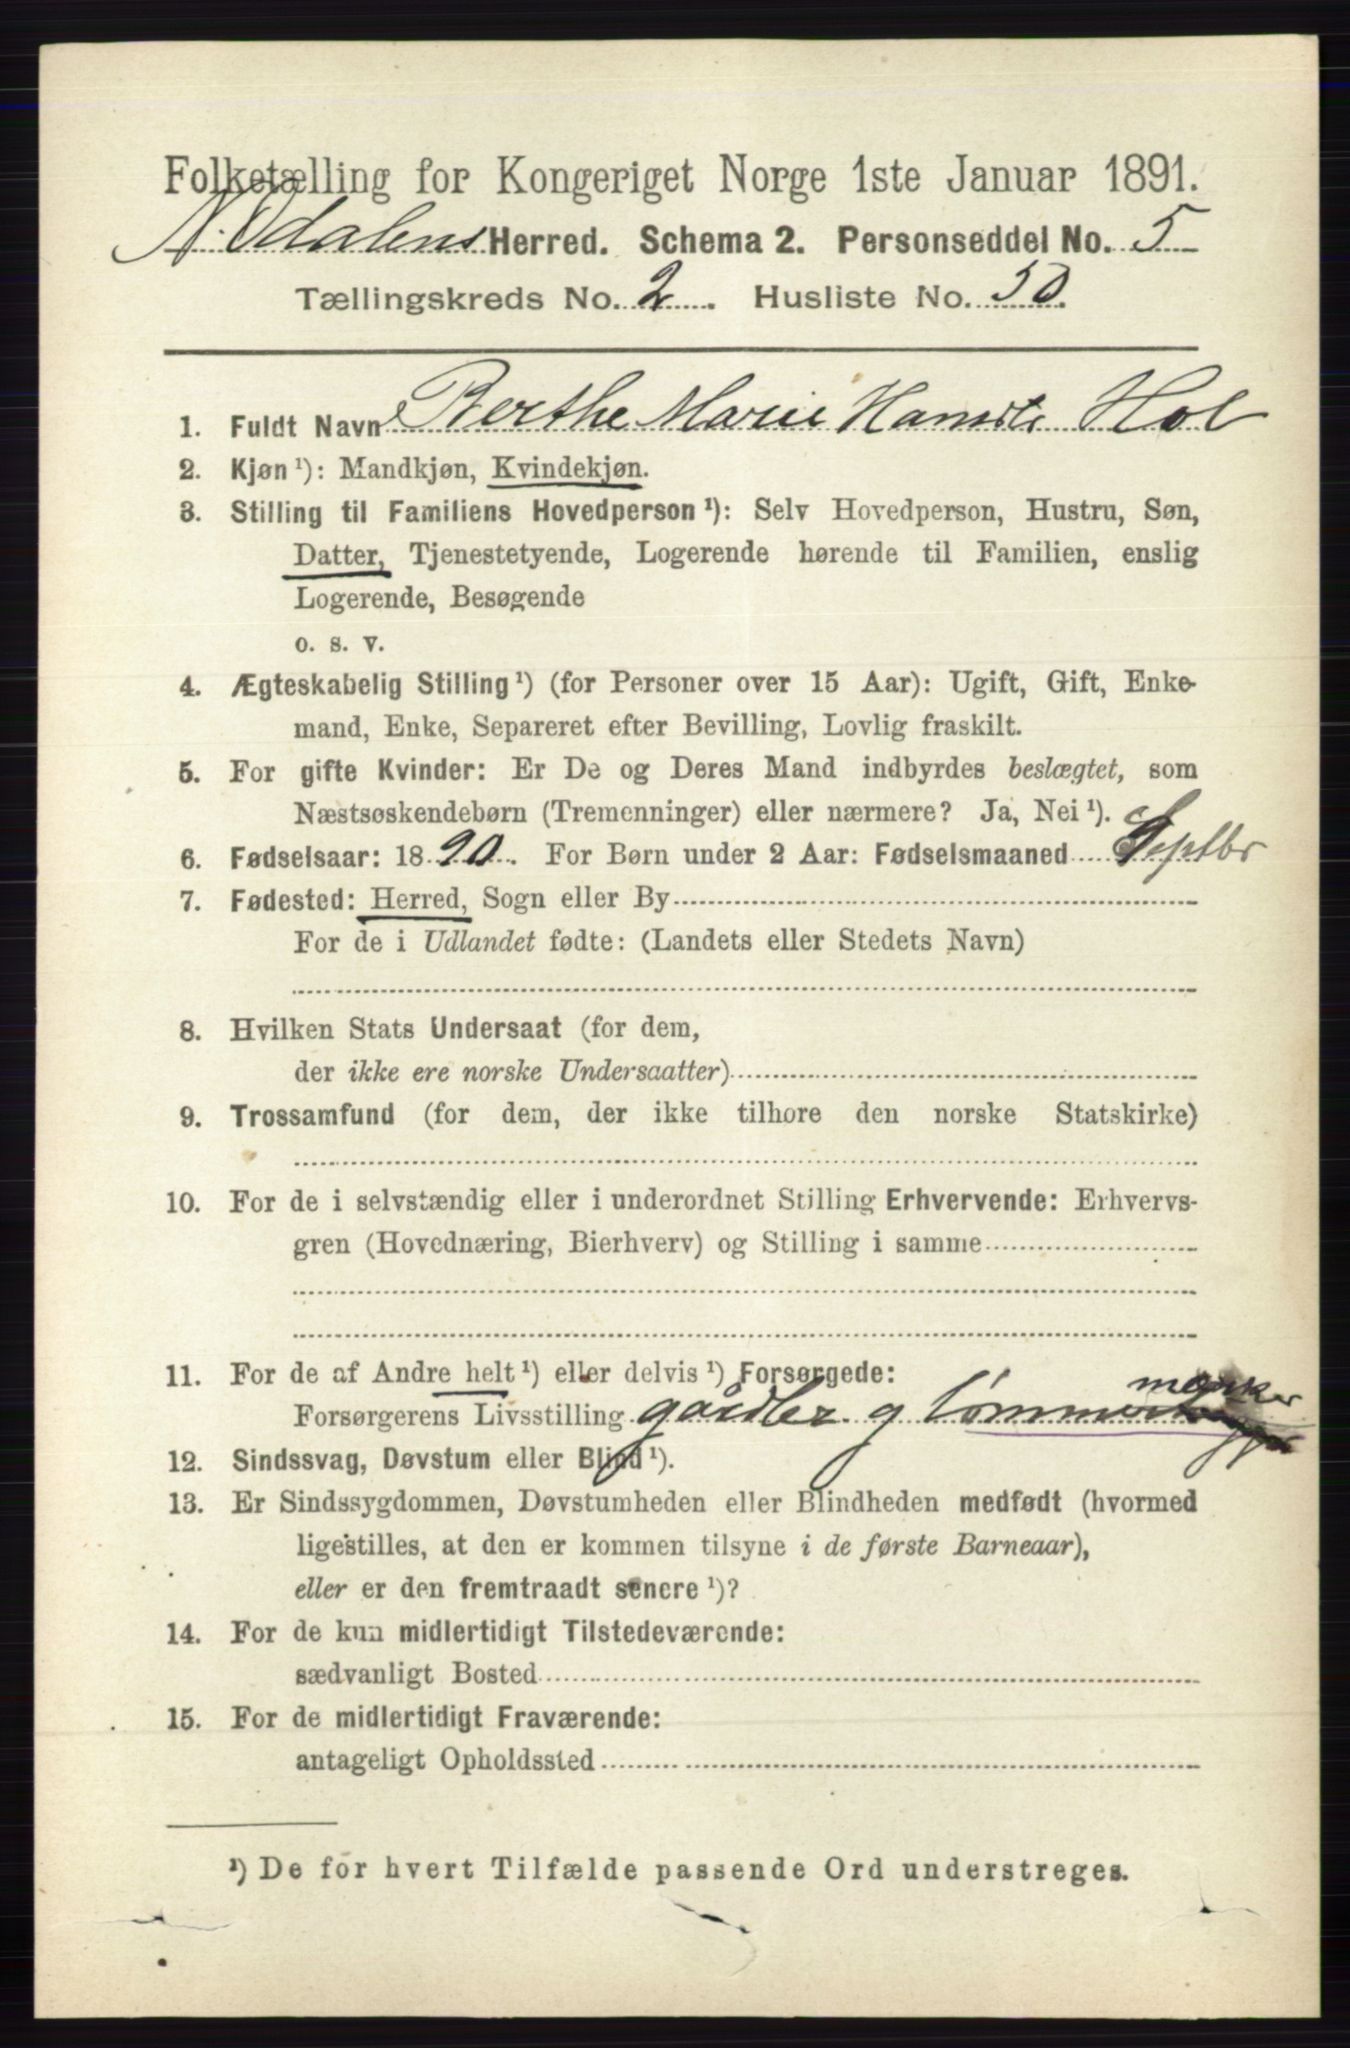 Folketælling for Kongeriget Norge 1ste Januar 1891.
N. Odalens Herred. Schema 2. Personseddel No. 5
Tællingskreds No. 2. Husliste No. 50.
1. Fuldt Navn Berthe Marie Hansdt Hol
2. Kjøn ¹): Mandkjøn, Kvindekjøn.
3. Stilling til Familiens Hovedperson ¹): Selv Hovedperson, Hustru, Søn,
Datter, Tjenestetyende, Logerende hørende til Familien, enslig
Logerende, Besøgende
o. s. v.
4. Ægteskabelig Stilling ¹) (for Personer over 15 Aar): Ugift, Gift, Enke-
mand, Enke, Separeret efter Bevilling, Lovlig fraskilt.
5. For gifte Kvinder: Er De og Deres Mand indbyrdes beslægtet, som
Næstsøskendebørn (Tremenninger) eller nærmere? Ja, Nei ¹).
6. Fødselsaar: 1890. For Børn under 2 Aar: Fødselsmaaned Septbr
7. Fødested: Herred, Sogn eller By
For de i Udlandet fødte: (Landets eller Stedets Navn)
8. Hvilken Stats Undersaat (for dem,
der ikke ere norske Undersaatter)
9. Trossamfund (for dem, der ikke tilhøre den norske Statskirke)
10. For de i selvstændig eller i underordnet Stilling Erhvervende: Erhvervs-
gren (Hovednæring, Bierhverv) og Stilling i samme
11. For de af Andre helt ¹) eller delvis ¹) Forsørgede:
mærker
Forsørgerens Livsstilling gårdbr og tømmer
12. Sindssvag, Døvstum eller Blind ¹).
13. Er Sindssygdommen, Døvstumheden eller Blindheden medfødt (hvormed
ligestilles, at den er kommen tilsyne i de første Barneaar),
eller er den fremtraadt senere ¹)?
14. For de kun midlertidigt Tilstedeværende:
sædvanligt Bosted
15. For de midlertidigt Fraværende:
antageligt Opholdssted
¹) De for hvert Tilfælde passende Ord understreges.